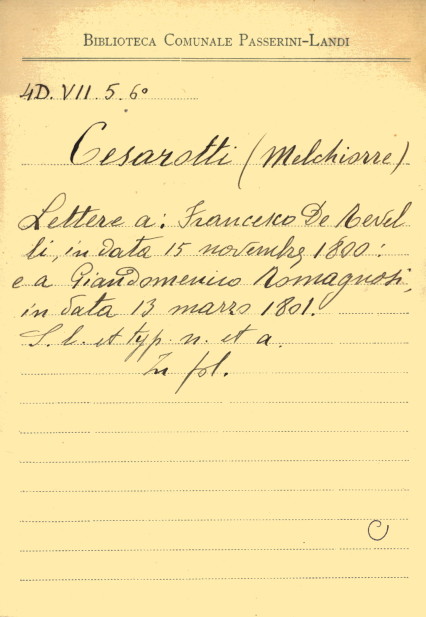 BIBLIOTECA COMUNALE PASSERINI-LANDI
4D. VII. 5. 6º
Cesarotti (Melchiorre)
Lettere a: Francesco De Revel
li, in data 15 novembre 1800:
e a Giandomenico Romagnosi,
in data 13 marzo 1801.
S. l. et typ. n. et a.
In fol.
C